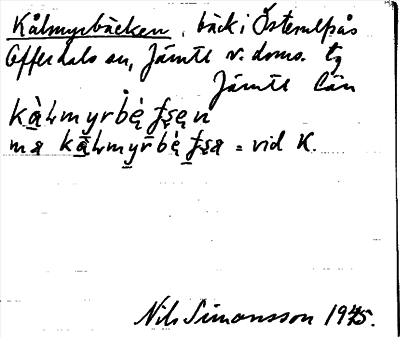 Kålmyrbäcken, bäck i Österulfsås
Offerdals sn, Jämtl v. doms. tg
Jämtl län
kàlmyrbę́ʃsęn
ma kàlmyrbę́ʃsa = vid K.
Nils Simonsson 1945.